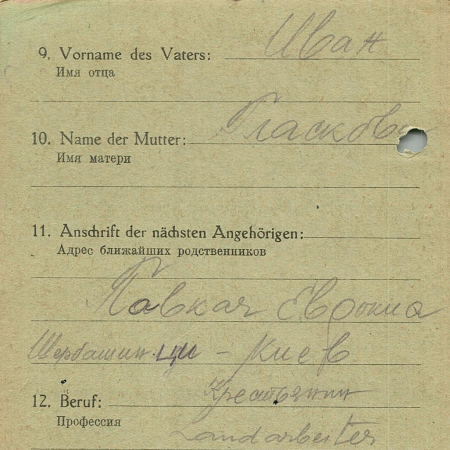 9. Vorname des Vaters: Иван
Имя отца
10. Name der Mutter: Гласкова
Имя матери
11. Anschrift der nächsten Angehörigen:
Адрес ближайших родственников
Евдокиа
– Киев
12. Beruf: Крестьянин
Профессия
Landarbeiter